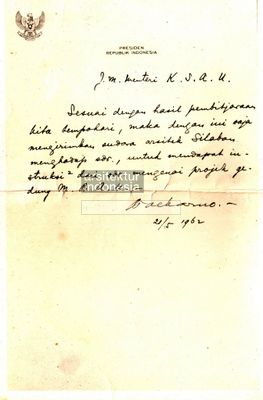 PRESIDEN
REPUBLIK INDONESIA
J.M. Menteri K.S.A.U.
Sesuai dengan hasil pembitjaraan
kita tempohari, maka dengan ini saja
mengirimkan sudara arsitek Silaban
menghadap sdr., untuk mendapat in-
struksi² mengenai projek ge-
dung M.
arsitektur
indonesia
Soekarno.-
21/5 1962